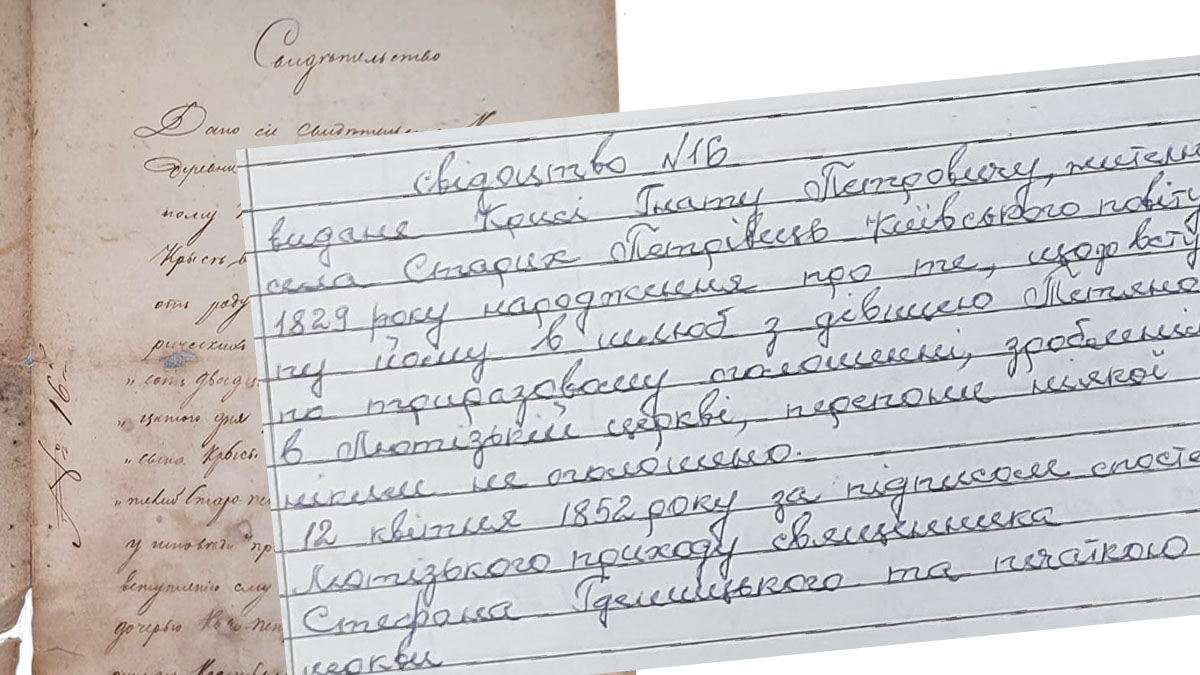 Свидѣтельство
Дано сіе свидѣтельство
Деревни
полу
Крысь
отъ роду
рическихъ
„сотъ двадц
„цатого дня
„сына Крысь
„тикив Старо
у исповѣди пр
вступленію ему
дочерью
№ 16
свідоцтво №16
видане Крисі Гнату Петровичу, жителю
села Старих Петрівець Київського повіту
1829 року народження про те, що до всту
пу йому в шлюб з дівицею Тетяно
по триразовому оголошенні, зробленні
в Лютізькій церкві, перепони ніякой
ніким не оголошено.
12 квітня 1852 року за підписом
Лютізького приходу священника
Стефана та печаткою
церкви